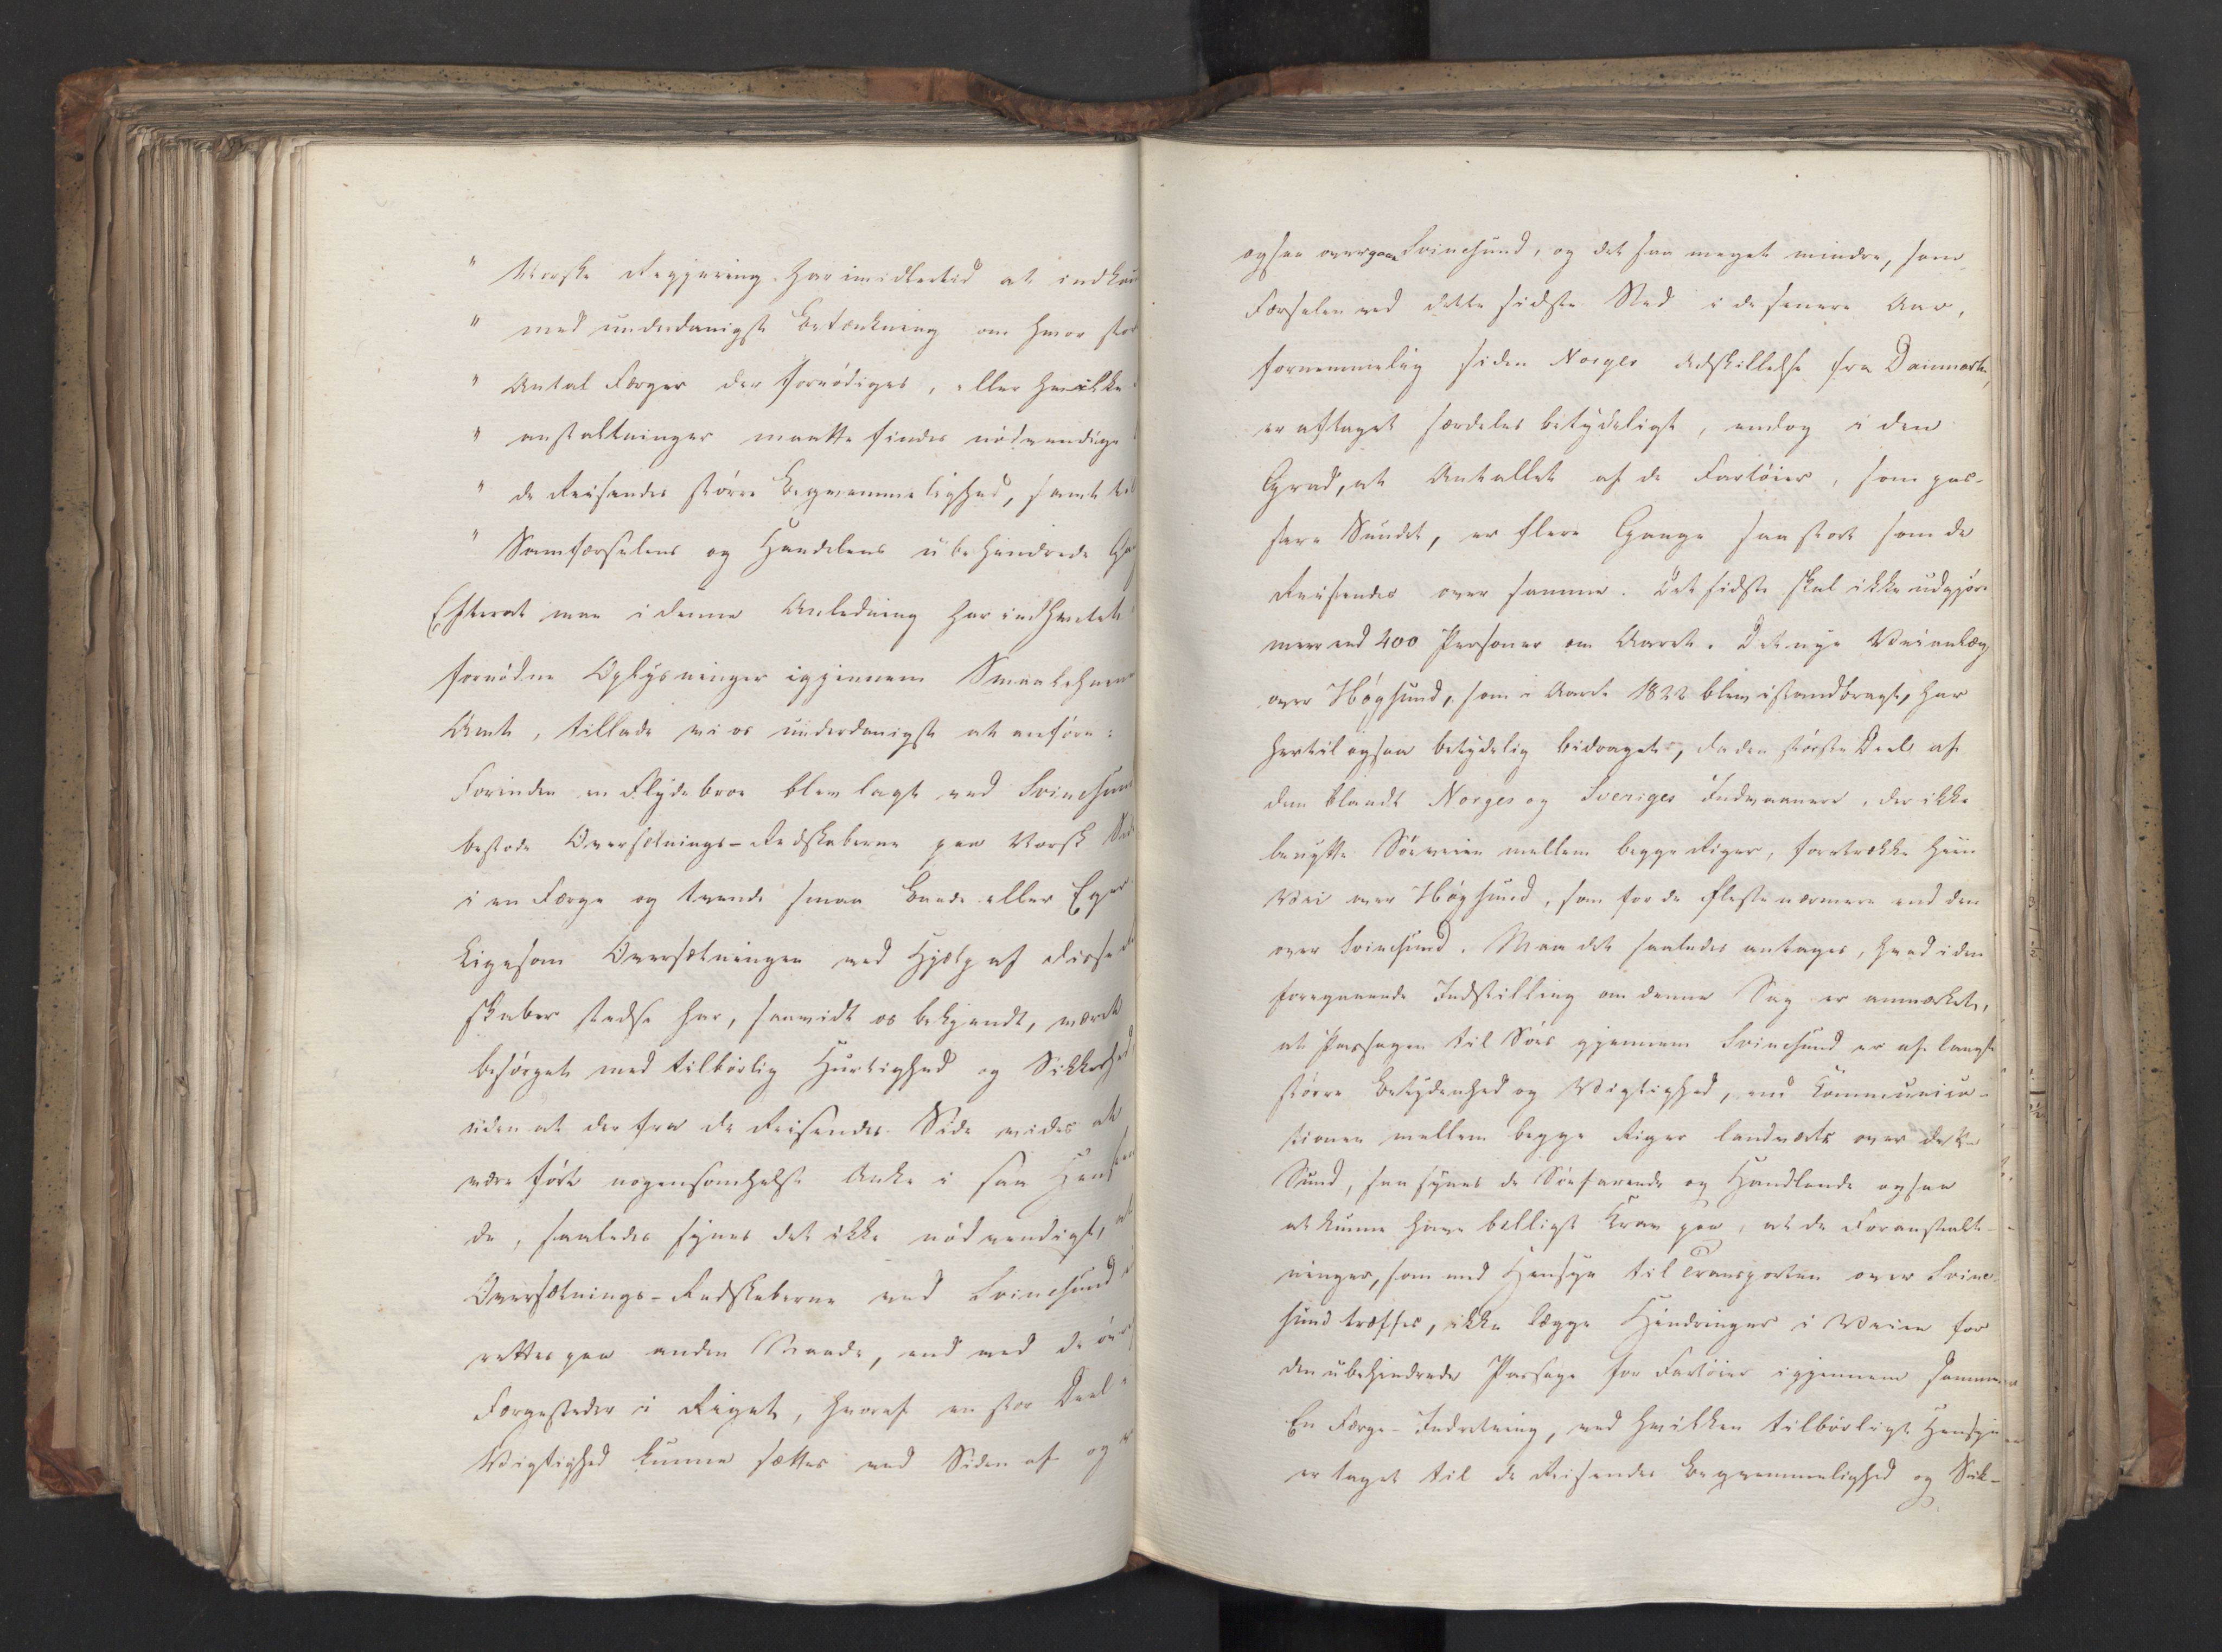 " Norske Regjering har imidlertid at indkom
" med underdanigst Betænkning om hvor stor
" Antal Færger der fornödiges, eller hvilke
" anstaltninger maatte findes nödvendige
" de Reisendes större Beqvemmelighed, samt til
" Samfærselens og Handelens ubehindrede
Efterat man i denne Anledning har indhentet
fornödne Oplysninger igjennem Smaalehnenes
Amt, tillade vi os underdanigst at anföre:
Forinden en Flydebroe blev lagt ved Svinesund
bestode Oversætnings-Redskaberne paa Norsk Side
i en Færge og tvende smaa Baade eller Eger.
Ligesom Oversætningen ved Hjælp af disse
skaber stedse har, saavidt os bekjendt, været
besörget med tilbörlig Hurtighed og Sikkerhed
uden at der fra de Reisendes Side vides at
være fört nogensomhelst Anke i saa Henseen
de, saaledes synes det ikke nödvendigt, at
Oversætnings-Redskaberne ved Svinesund
rettes paa anden Maade, end ved de övr
Færgesteder i Riget, hvoraf en stor Deel i
Vigtighed kunne sættes ved Siden af og
ogsaa overgaae Svinesund, og det saa meget mindre, som
Færselen ved dette sidste Sted i de senere Aar,
fornemmelig siden Norges Adskillelse fra Danmark,
er aftaget særdeles betydeligt, endog i den
Grad, at Antallet af de Fartöier, som pas-
sere Sundet, er flere Gange saa stort som de
Reisendes over samme. Det sidste skal ikke udgjöre
meer end 400 Personer om Aaret. Det nye Veianlæg
over Högsund, som i Aaret 1822 blev istandbragt, har
hertil ogsaa betydelig bidraget, da den störste Deel af
dem blandt Norges og Sveriges Indvaanere, der ikke
benytte Söeveien mellem begge Riger, foretrække hiin
Vei over Högsund, som for de fleste nærmere end den
over Svinesund. Maa det saaledes antages, hvad i den
foregaaende Indstilling om denne Sag er anmærket,
at Passagen til Söes gjennem Svinesund er af langt
större Betydenhed og Vigtighed, end Communica-
tionen mellem begge Riger landværts over dette
Sund, saa synes de Söefarende og Handlende ogsaa
at kunne have billigt Krav paa, at de Foranstalt-
ninger, som med Hensyn til Transporten over Svine-
sund træffes, ikke lægge Hindringer i Veien for
den ubehindrede Passage for Fartöier igjennem samme
En Færge-Indretning, ved hvilken tilbörligt Hensyn
er taget til de Reisendes Beqvemmelighed og Sik-